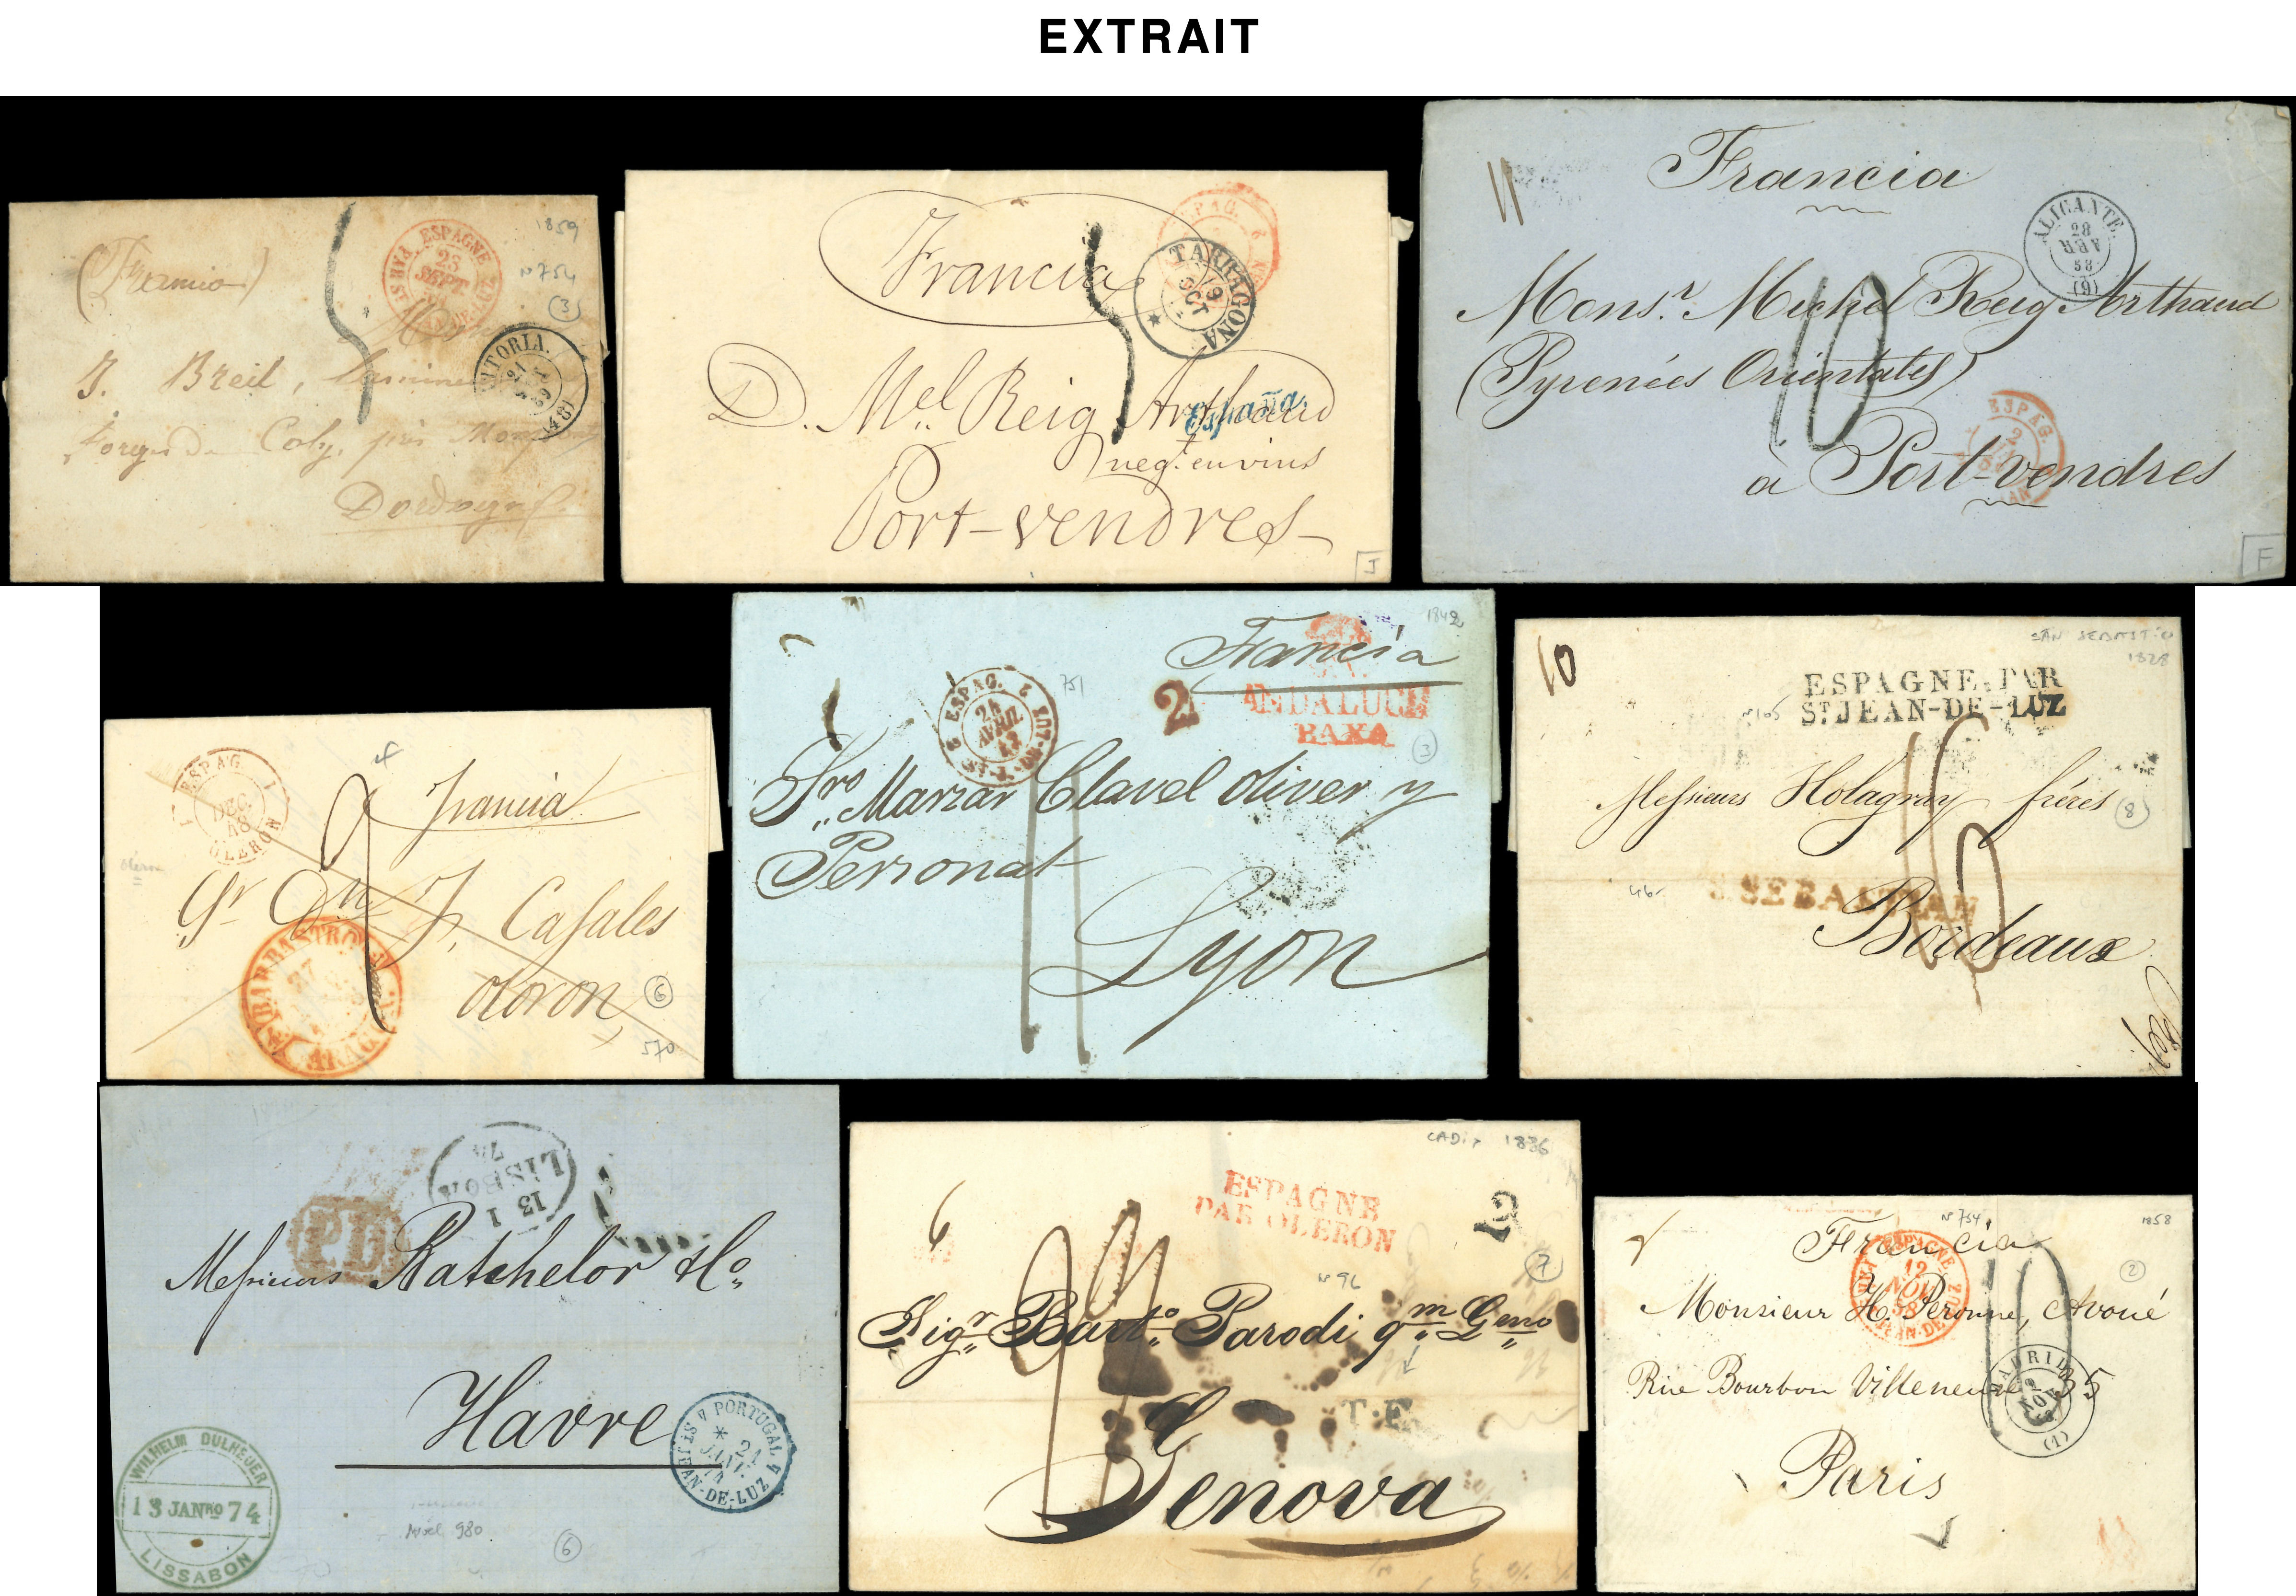 EXTRAIT
1859
ESPAGNE
23
SEPT.
N° 754
(3)
VITORIA.
21
(48)
J. Breil,
près
Dordogne
ESPAG.
Francia
TARRAGONA
19
D. Mel. Reig Arthaud
España.
negt. en vins
Port-vendres
J
11
Francia
ALICANTE.
28
ABR
58
(9)
Monsr. Michel Reig Arthaud
10
(Pyrenées Orientales)
ESPAG.
2
à Port-vendres
F
1 ESPAG. 1
DEC.
48
OLERON
Francia
Sr Dn J. Casales
BARBASTRO
27
oloron
(6)
570
1842
Francia
2 ESPAG. 2
ST-J-DE-LUZ
24
AVRIL
42
751
2
ANDALUCIA
BAXA
(3)
Sres. Marzar Clavel oliver y
Perronat
Lyon
10
SAN SEBASTIEN
1828
ESPAGNE PAR
ST. JEAN-DE-LUZ
N°105
Messieurs Holagray frères
(8)
46-
S. SEBASTIAN
Bordeaux
LISBOA
13 1
74
PD
Messieurs Batchelor & Co.
Havre
PORTUGAL
ST JEAN-DE-LUZ
21
JANV.
74
WILHELM DULHEUER
13 JANRO 74
LISSABON
Noël 980
(6)
CADIX 1836
ESPAGNE
PAR OLERON
6
2
(7)
N° 96
Sigr. Barto. Parodi qm. Gmo
T.F.
Genova
N° 754
1858
Francia
ESPAGNE
ST JEAN-DE-LUZ
12
NOV.
58
10
(2)
Monsieur H. Peronne, Avoué
MADRID
9
NOV
(1)
Rue Bourbon Villeneuve 35
Paris